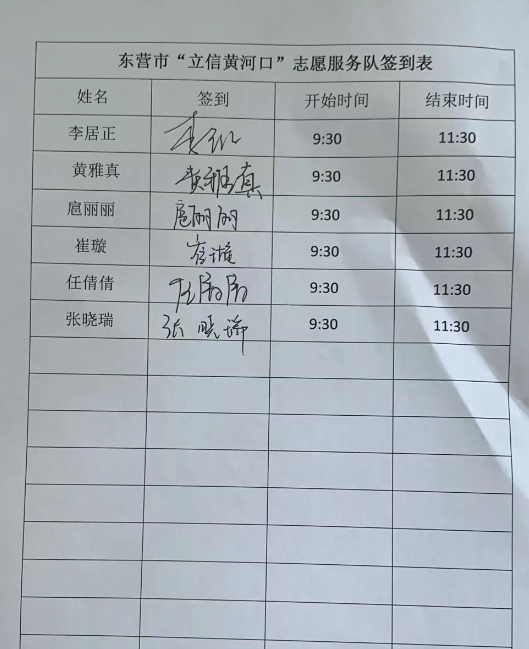 东营市“立信黄河口”志愿服务队签到表
姓名 签到 开始时间 结束时间
李居正 9:30 11:30
黄雅真 黄雅真 9:30 11:30
扈丽丽 扈丽丽 9:30 11:30
崔璇 崔璇 9:30 11:30
任倩倩 任倩倩 9:30 11:30
张晓瑞 张晓瑞 9:30 11:30